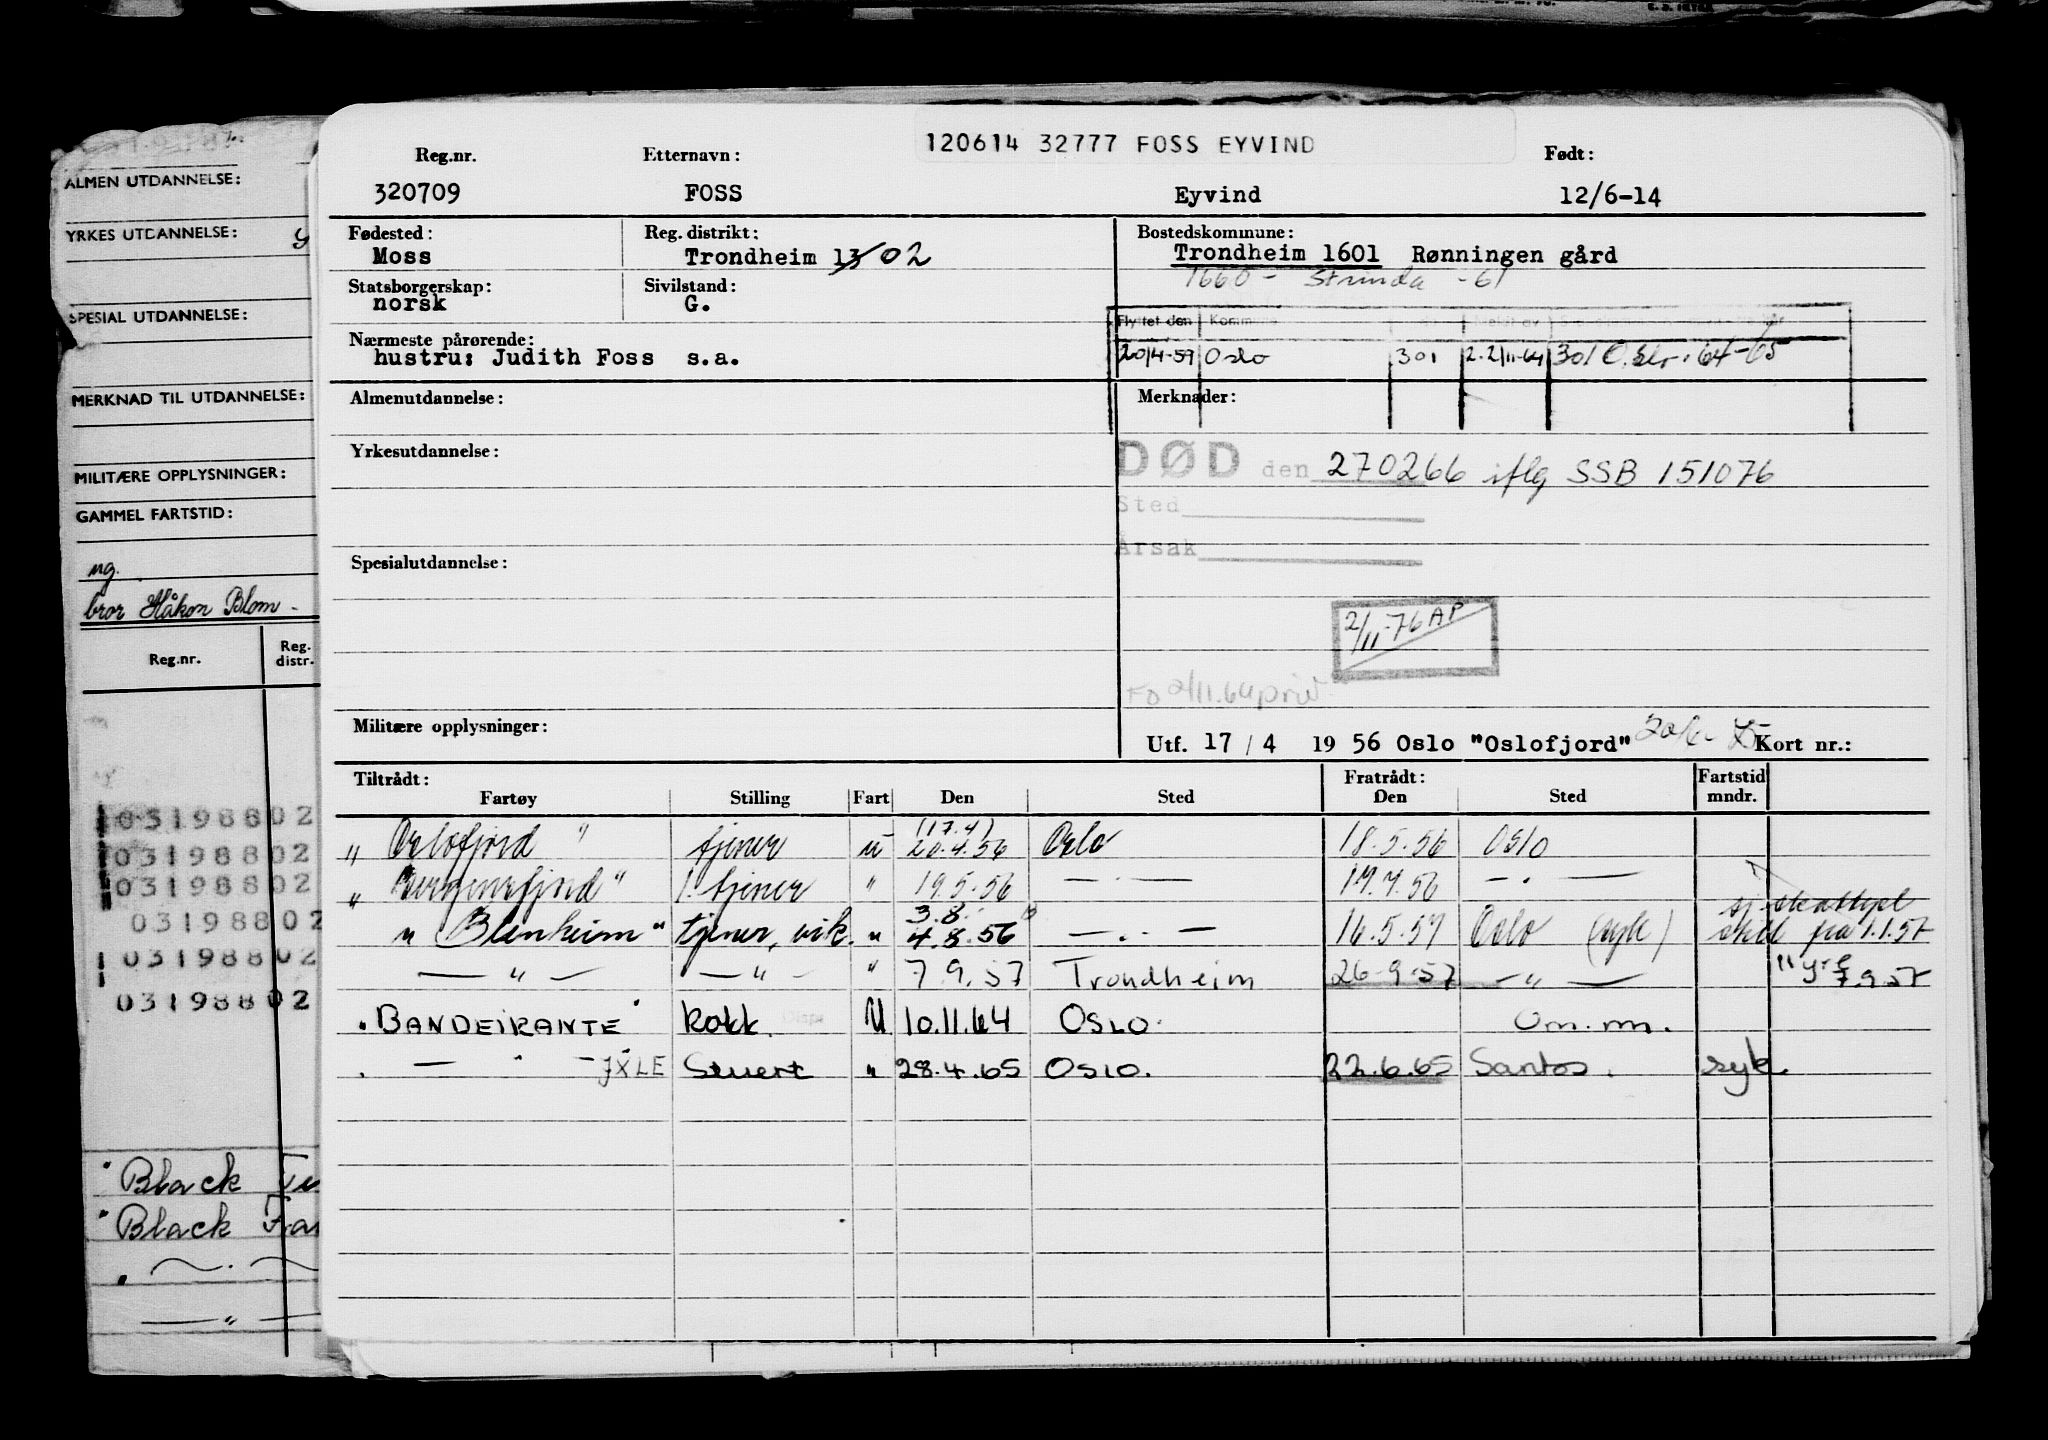 120614 32777 FOSS EYVIND
Reg.nr. Etternavn: Født:
320709 FOSS Eyvind 12/6-14
Fødested: Reg. distrikt: Bostedskommune:
Moss Trondheim 13/02 Trondheim 1601 Rønningen gård
1660 - Strinda -61
Statsborgerskap: Sivilstand:
norsk G.
Flyttet den Kommune
Nærmeste pårørende:
hustru: Judith Foss s.a. 20/4-59 Oslo 301 2.2/11-64 301 O. Slr. 64-65
Almenutdannelse: Merknader:
Yrkesutdannelse:
DØD den 270266 iflg SSB 151076
Sted
Årsak
Spesialutdannelse:
2/11-76 AP
FO 2/11.64 priv.
Militære opplysninger:
Utf. 17/4 1956 Oslo "Oslofjord" Kort nr.:
Tiltrådt: Fratrådt: Fartstid
Fartøy Stilling Fart Den Sted Den Sted mndr.
(17.4)
" Oslofjord " tjener u 20.4.56 Oslo 18.5.56 Oslo
" Bergensfjord " 1. tjener " 19.5.56 — . — 17.7.56 — . —
3.8.
" Blenheim " tjener, vik. " 4.8.56 — . . — 16.5.57 Oslo (syk) fra 1.1.57
— " — — " — " 7.9.57 Trondheim 26-9-57 — " — " 7.9.57
. BANDEIRANTE kokk. U 10.11.64 OSLO. Om.m.
. — " — JXLE Stuert " 28.4.65 OSLO. 22.6.65 Santos. syk.
ALMEN UTDANNELSE:
YRKES UTDANNELSE:
SPESIAL UTDANNELSE:
MERKNAD TIL UTDANNELSE:
MILITÆRE OPPLYSNINGER:
GAMMEL FARTSTID:
ug.
bror Håkon Blom -
Reg.nr. Reg. distr.
03198802
03198802
03198802
03198802
03198802
03198802
" Black
" Black